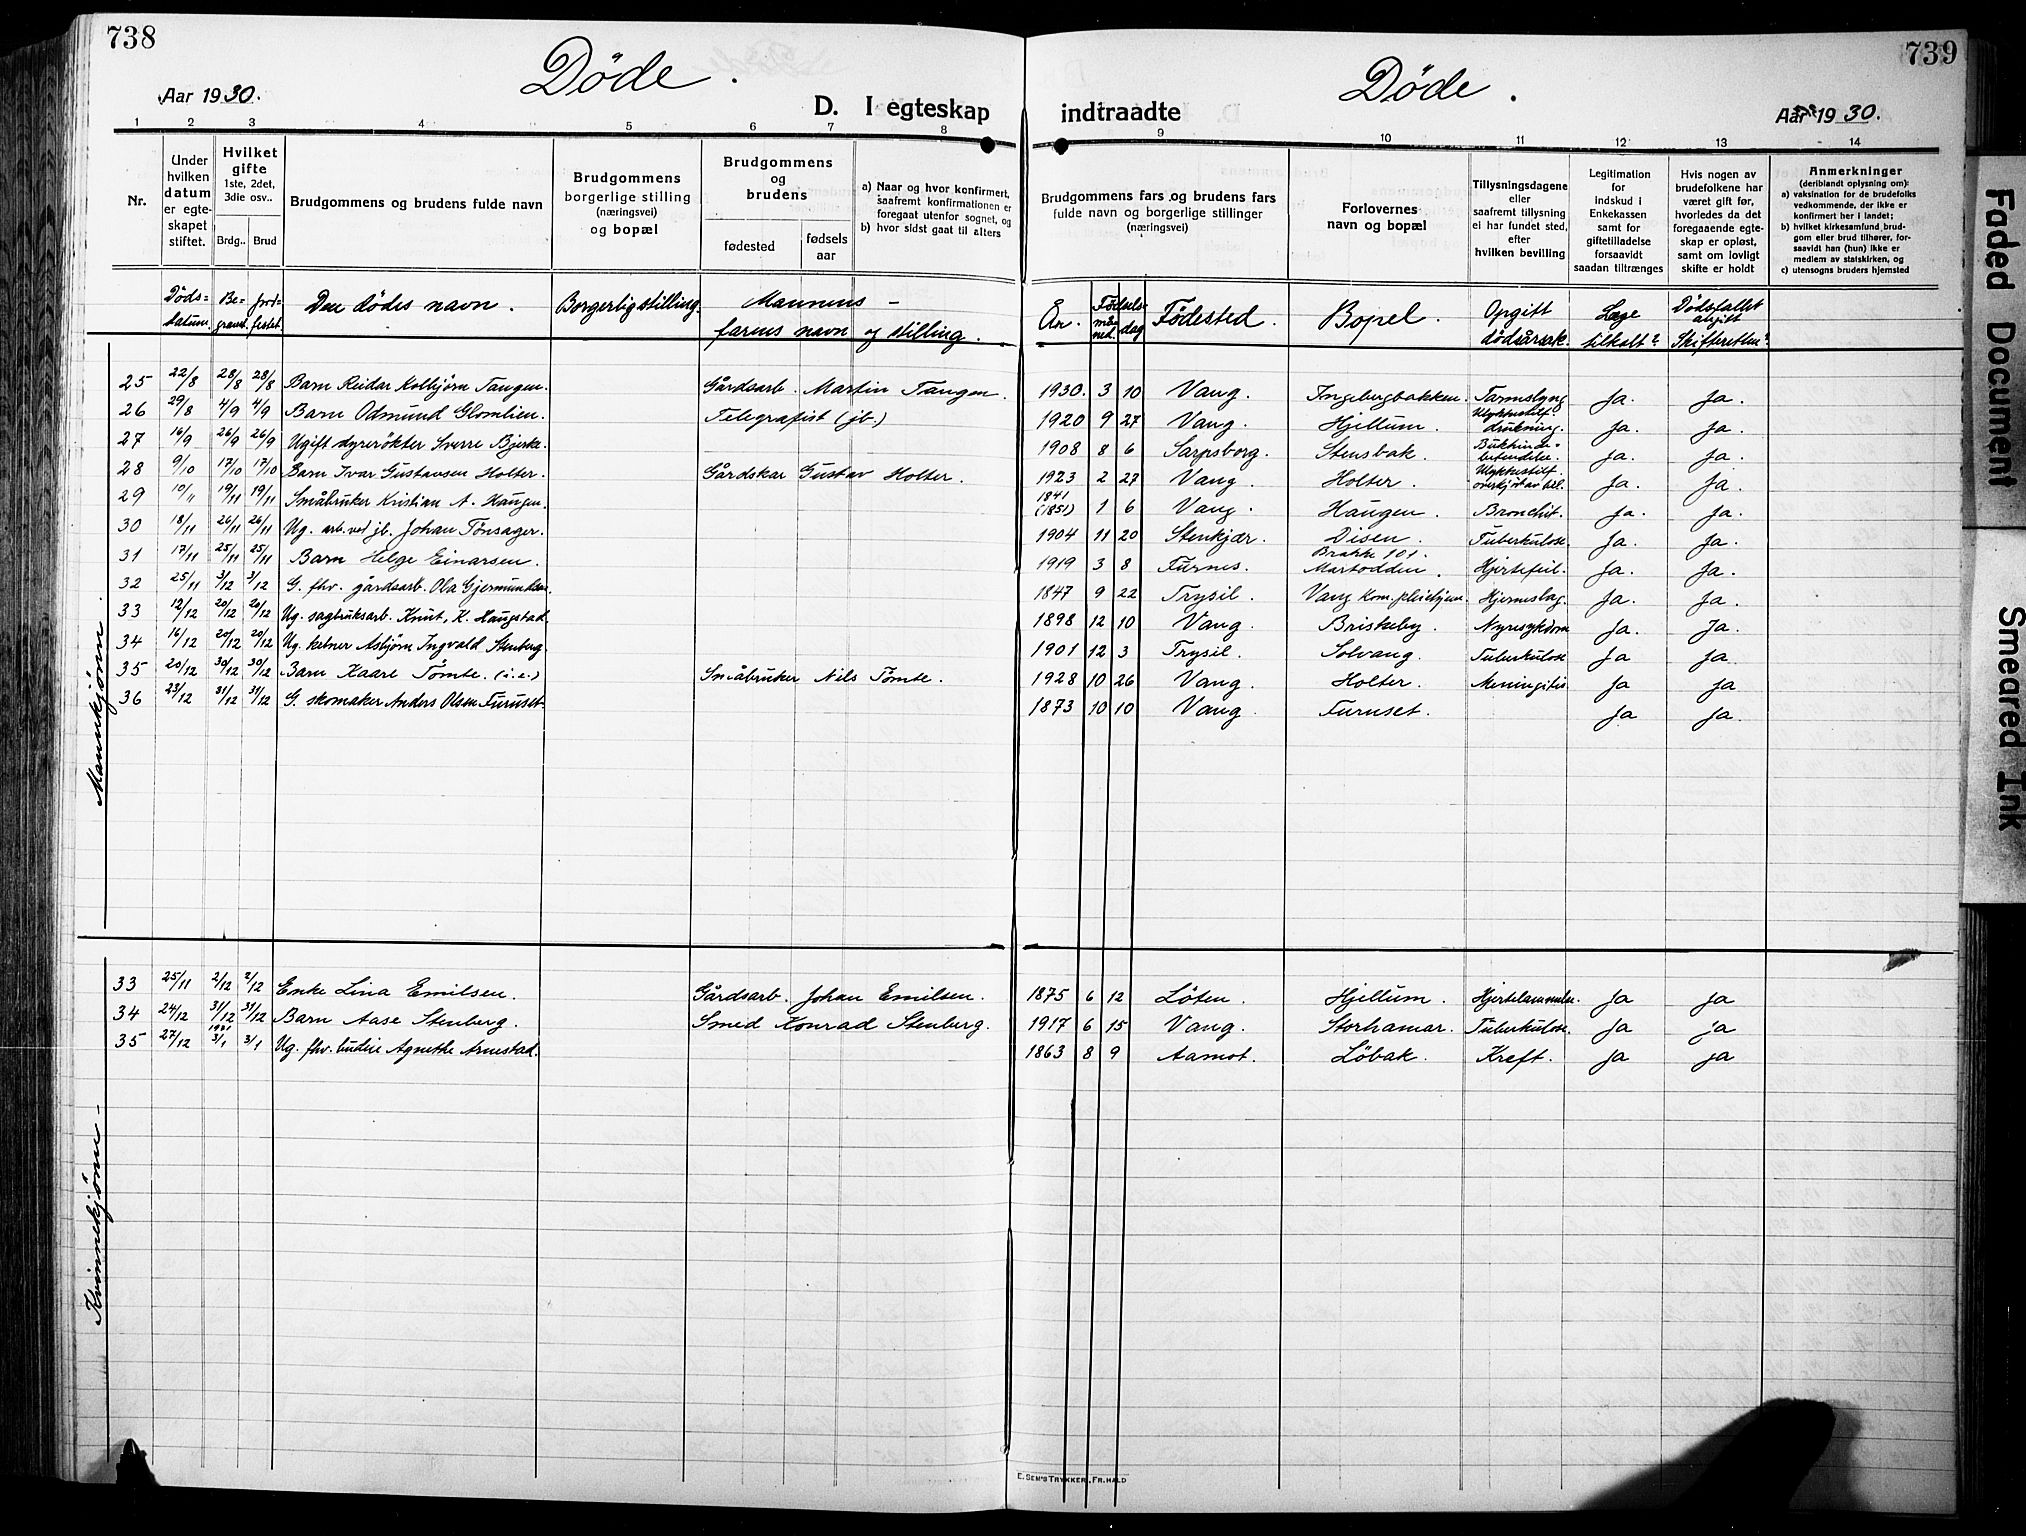 738
Døde.
Aar 1930.
D. I egteskap
1 2 3 4 5 6 7 8
Nr.
Under hvilken datum er egteskapet stiftet.
Hvilket gifte 1ste, 2det, 3die osv..
Brdg.. Brud
Brudgommens og brudens fulde navn
Brudgommens borgerlige stilling (næringsvei) og bopæl
Brudgommens og brudens
fødested
fødsels aar
a) Naar og hvor konfirmert, saafremt konfirmationen er foregaat utenfor sognet, og
b) hvor sidst gaat til alters
Døds-datum Be-gravet. Jord-festet. Den dødes navn. Borgerlig stilling. Mannens – farens navn og stilling.
Mannkjønn
25 22/8 28/8 28/8 Barn Reidar Kolbjørn Tangen. Gårdsarb. Martin Tangen.
26 29/8 4/9 4/9 Barn Odmund Glomlien. Telegrafist (jb.)
27 16/9 26/9 26/9 Ugift dyrerøkter Sverre Bjerke.
28 9/10 17/10 17/10 Barn Ivar Gustavsen Holter. Gårdskar Gustav Holter.
29 10/11 19/11 19/11 Småbruker Kristian A. Haugen.
30 18/11 26/11 26/11 Ug. arb. ved jb. Johan Tønsager.
31 17/11 25/11 25/11 Barn Helge Einarsen.
32 25/11 3/12 3/12 G. fhv. gårdsarb. Ola Gjermundsen.
33 12/12 20/12 20/12 Ug. sagbruksarb. Knut K. Haugstad.
34 16/12 20/12 20/12 Ug. kelner Asbjørn Ingvald Stenberg.
35 20/12 30/12 30/12 Barn Kaare Tømte. (i.e.) Småbruker Nils Tømte.
36 23/12 31/12 31/12 G. skomaker Anders Olsen Furuset.
Kvinnekjønn
33 25/11 2/12 2/12 Enke Lina Emilsen. Gårdsarb. Johan Emilsen.
34 24/12 31/12 31/12 Barn Aase Stenberg. Smed Konrad Stenberg.
35 27/12 1931 3/1 3/1 Ug. fhv. budeie Agnethe Arnestad.
739
Døde.
indtraadte
Aar 1930.
9 10 11 12 13 14
Brudgommens fars og brudens fars fulde navn og borgerlige stillinger (næringsvei)
Forlovernes navn og bopæl
Tillysningsdagene eller saafremt tillysning ei har fundet sted, efter hvilken bevilling
Legitimation for indskud i Enkekassen samt for giftetilladelse forsaavidt saadan tiltrænges
Hvis nogen av brudefolkene har været gift før, hvorledes da det foregaaende egteskap er opløst, samt om lovligt skifte er holdt
Anmerkninger
(deriblandt oplysning om):
a) vaksination for de brudefolks vedkommende, der ikke er konfirmert her i landet;
b) hvilket kirkesamfund brudgom eller brud tilhører, forsaavidt han (hun) ikke er medlem av statskirken, og
c) utensogns bruders hjemsted
År. Fødsels-måned. dag Fødested. Bopel. Opgitt dødsårsak. Læge tilkalt? Dødsfallet angitt Skifteretten?
1930. 3 10 Vang. Ingebergbakken. Tarmslyng Ja. Ja.
1920 9 27 Vang. Hjellum. Ulykkestilf. drukning. Ja. Ja.
1908 8 6 Sarpsborg. Stensbak. Bukhinde-betendelse. Ja. Ja.
1923 2 27 Vang. Holter. Ulykkestilf. overkjørt av bil. Ja. Ja.
1841 (1851) 1 6 Vang. Haugen. Bronchit. Ja. Ja.
1904 11 20 Stenkjær. Disen. Tuberkulose. Ja. Ja.
1919 3 8 Furnes. Brakke 101. Martodden. Hjertefeil. Ja. Ja.
1847 9 22 Trysil. Vang kom. pleiehjem. Hjerneslag. Ja. Ja.
1898 12 10 Vang. Briskeby. Nyresykdom Ja. Ja.
1901 12 3 Trysil. Solvang. Tuberkulose Ja Ja.
1928 10 26 Vang. Holter. Meningitis Ja Ja
1873 10 10 Vang. Furuset. Ja Ja.
1875 6 12 Löten. Hjellum. Hjertelammelse. Ja Ja
1917 6 15 Vang. Storhamar. Tuberkulose. Ja Ja
1863 8 9 Aamot. Löbak. Kreft. Ja Ja
E. Sem's Trykkeri, Fr.hald
Faded Document
Smeared Ink